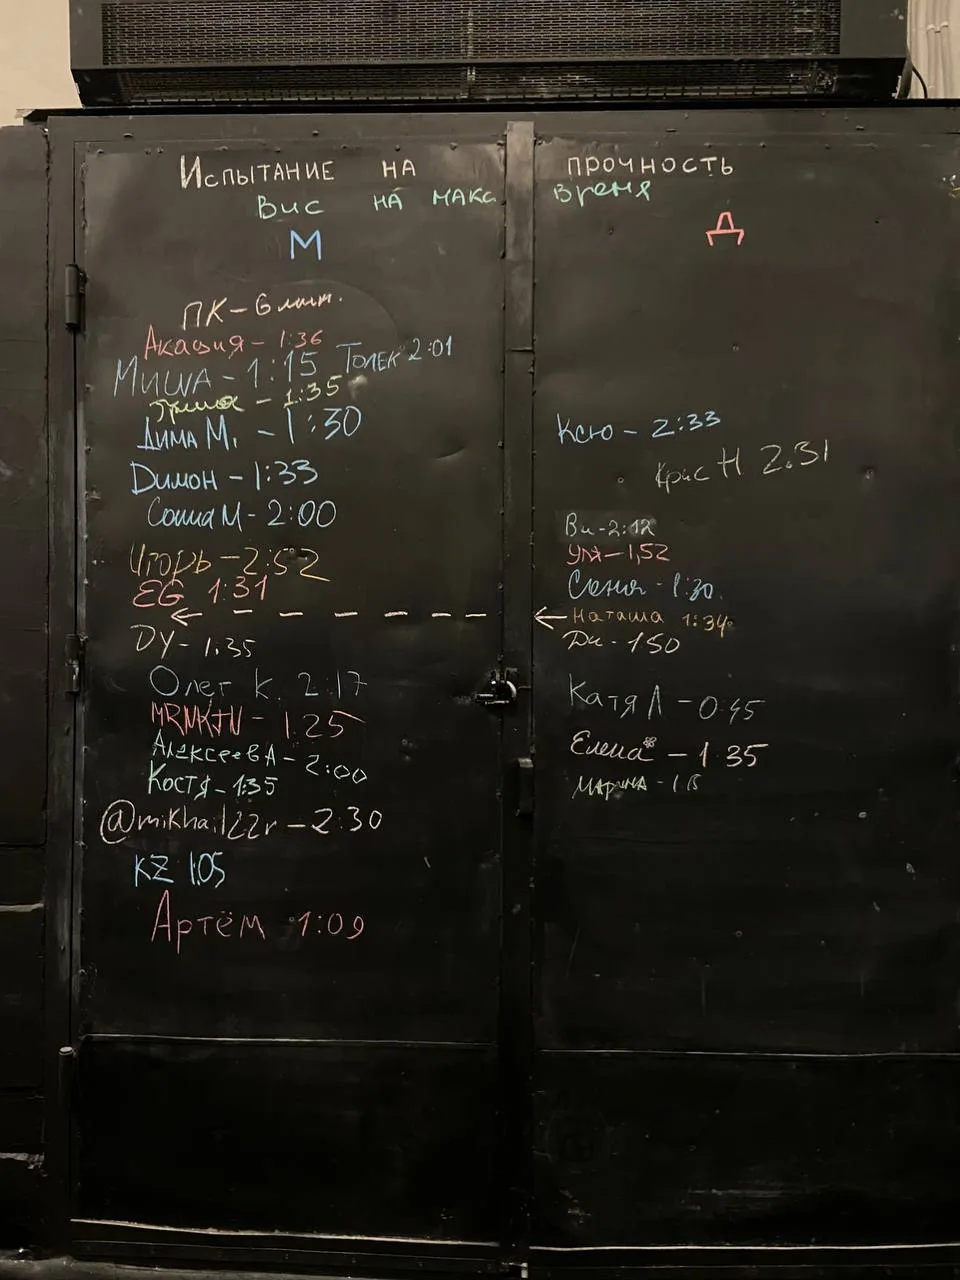 Испытание на прочность
Вис на макс. время
М
Д
ПК - 6 мин.
Акация - 1:36
Миша - 1:15
Толек 2:01
Гриша - 1:35
Дима М. - 1:30
Димон - 1:33
Саша М - 2:00
Игорь - 2:52
EG 1:31
DY - 1:35
Олег К. 2:17
- 1.25
Алексеев А - 2:00
Костя - 1:35
@mikhail22r - 2:30
KZ 1:05
Артём 1:09
Ксю - 2:33
Крис Н 2.31
Ви - 2:12
Уля - 1,52
Сеня - 1:30.
Наташа 1:34
Ди - 1 50
Катя Л - 0:45
Елена - 1:35
Марина -